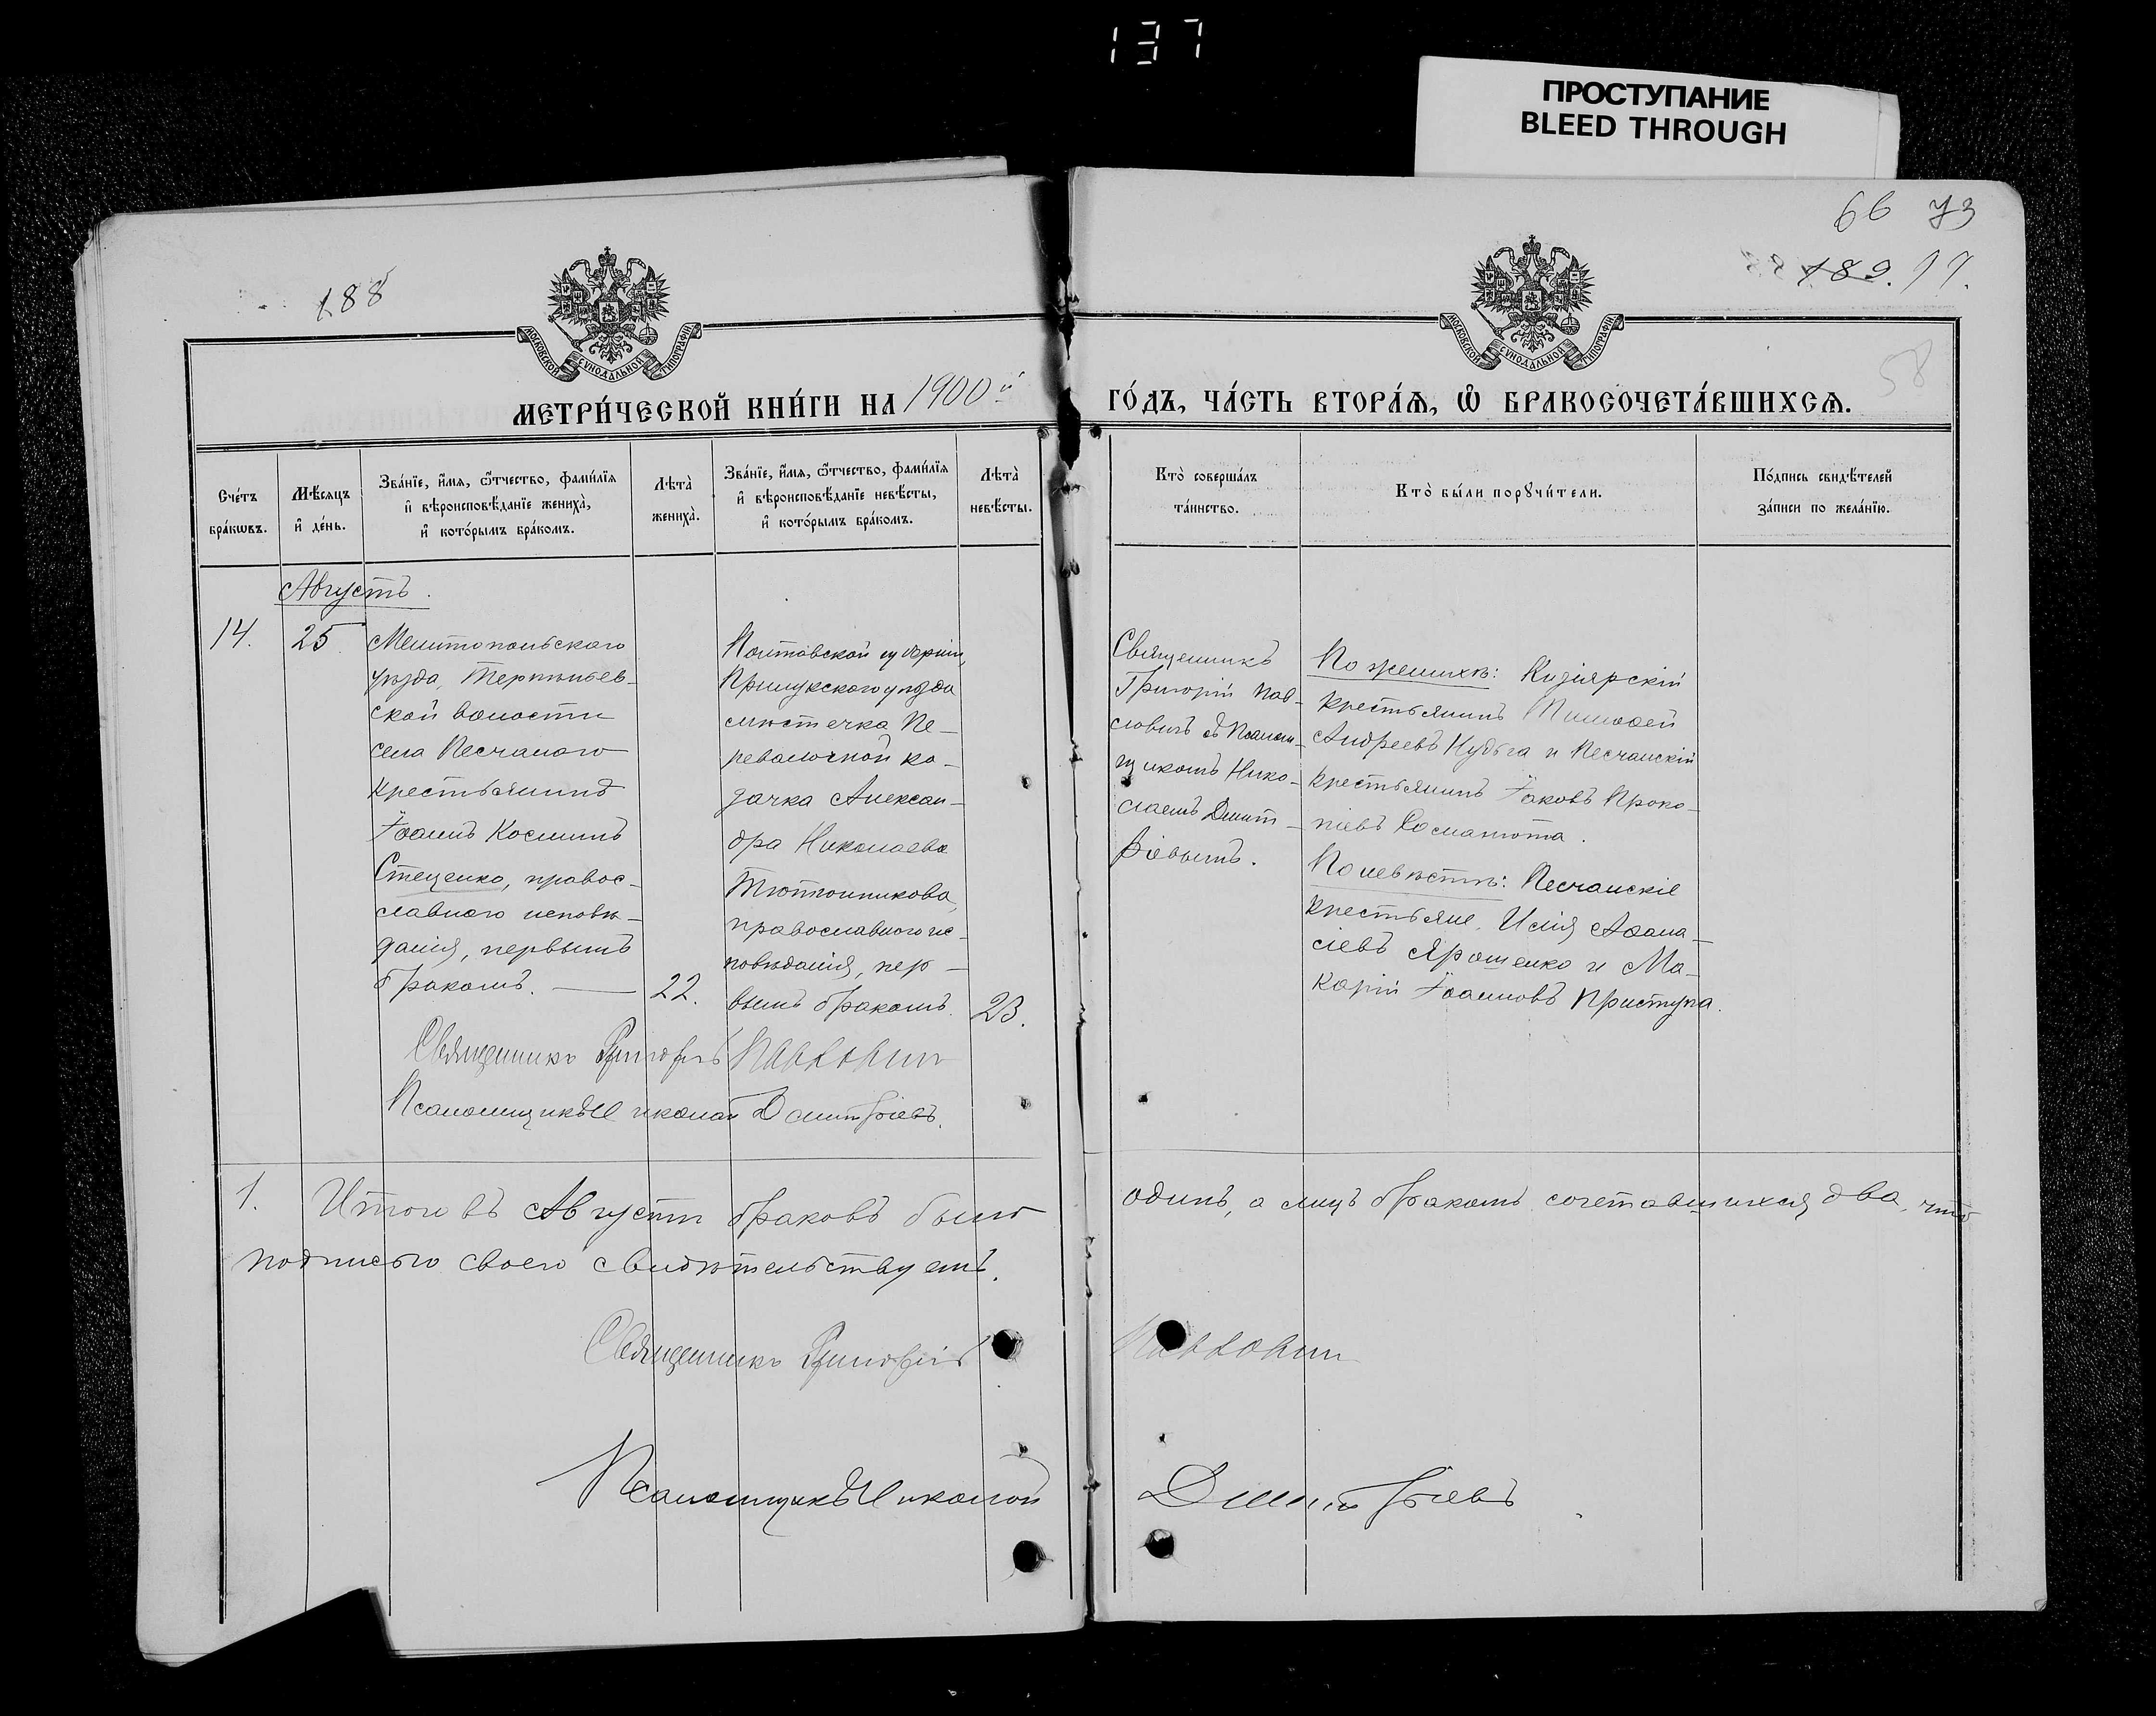 137
ПРОСТУПАНИЕ
BLEED THROUGH
66 73
188
189. 17.
58
МОСКОВСКОЙ СѴНОДАЛЬНОЙ ТИПОГРАФІИ
МОСКОВСКОЙ СѴНОДАЛЬНОЙ ТИПОГРАФІИ
МЕТРИ́ЧЕСКОЙ КНИ́ГИ НА 1900й ГО́ДЪ, ЧА́СТЬ ВТОРА́Ѧ, Ѽ БРАКОСОЧЕТА́ВШИХСѦ.
Сче́тъ бра́кѡвъ.
Мѣ́сяцъ и҆ де́нь.
Зва́нїе, и҆́мя, ѻ҆́тчество, фами́лїя
и҆ вѣроисповѣ́данїе жениха̀,
и҆ кото́рымъ бра́комъ.
Лѣта̀ жениха̀.
Зва́нїе, и҆́мя, ѻ҆́тчество, фами́лїя
и҆ вѣроисповѣ́данїе невѣ́сты,
и҆ кото́рымъ бра́комъ.
Лѣта̀ невѣ́сты.
Кто̀ соверша́лъ та́инство.
Кто̀ бы́ли порꙋчи́тели.
По́дпись свидѣ́телей за́писи по жела́нїю.
Августъ.
14.
25.
Мелитопольскаго
уѣзда, Терпѣньев-
ской волости
села Песчанаго
крестьянинъ
Іоаннъ Косминъ
Стеценко, правос-
лавнаго исповѣ-
данія, первымъ
бракомъ. —
22.
Полтавской губерніи,
Прилукскаго уѣзда
мѣстечка Пе-
револочной ка-
зачка Алексан-
дра Николаева
Тютюнникова,
православнаго ис-
повѣданія, пер-
вымъ бракомъ.
23.
Священникъ
Григорій Пав-
ловичъ съ Псалом-
щикомъ Нико-
лаемъ Димит-
ріевымъ.
По женихѣ: Кизіярскій
крестьянинъ Тимофей
Андреевъ Кудьга и Песчанскій
крестьянинъ Іаковъ Проко-
піевъ
По невѣстѣ: Песчанскіе
крестьяне, Илія Аѳана-
сіевъ Ярошенко и Ма-
карій Іоанновъ Приступа.
Священникъ Григорій Павловичъ
Псаломщикъ Николай Димитріевъ.
1. Итого въ Августѣ браковъ было одинъ, а лицъ бракомъ сочетавшихся два, что
подписью своею свидѣтельствуемъ.
Священникъ Григорій Павловичъ
Псаломщикъ Николай Димитріевъ